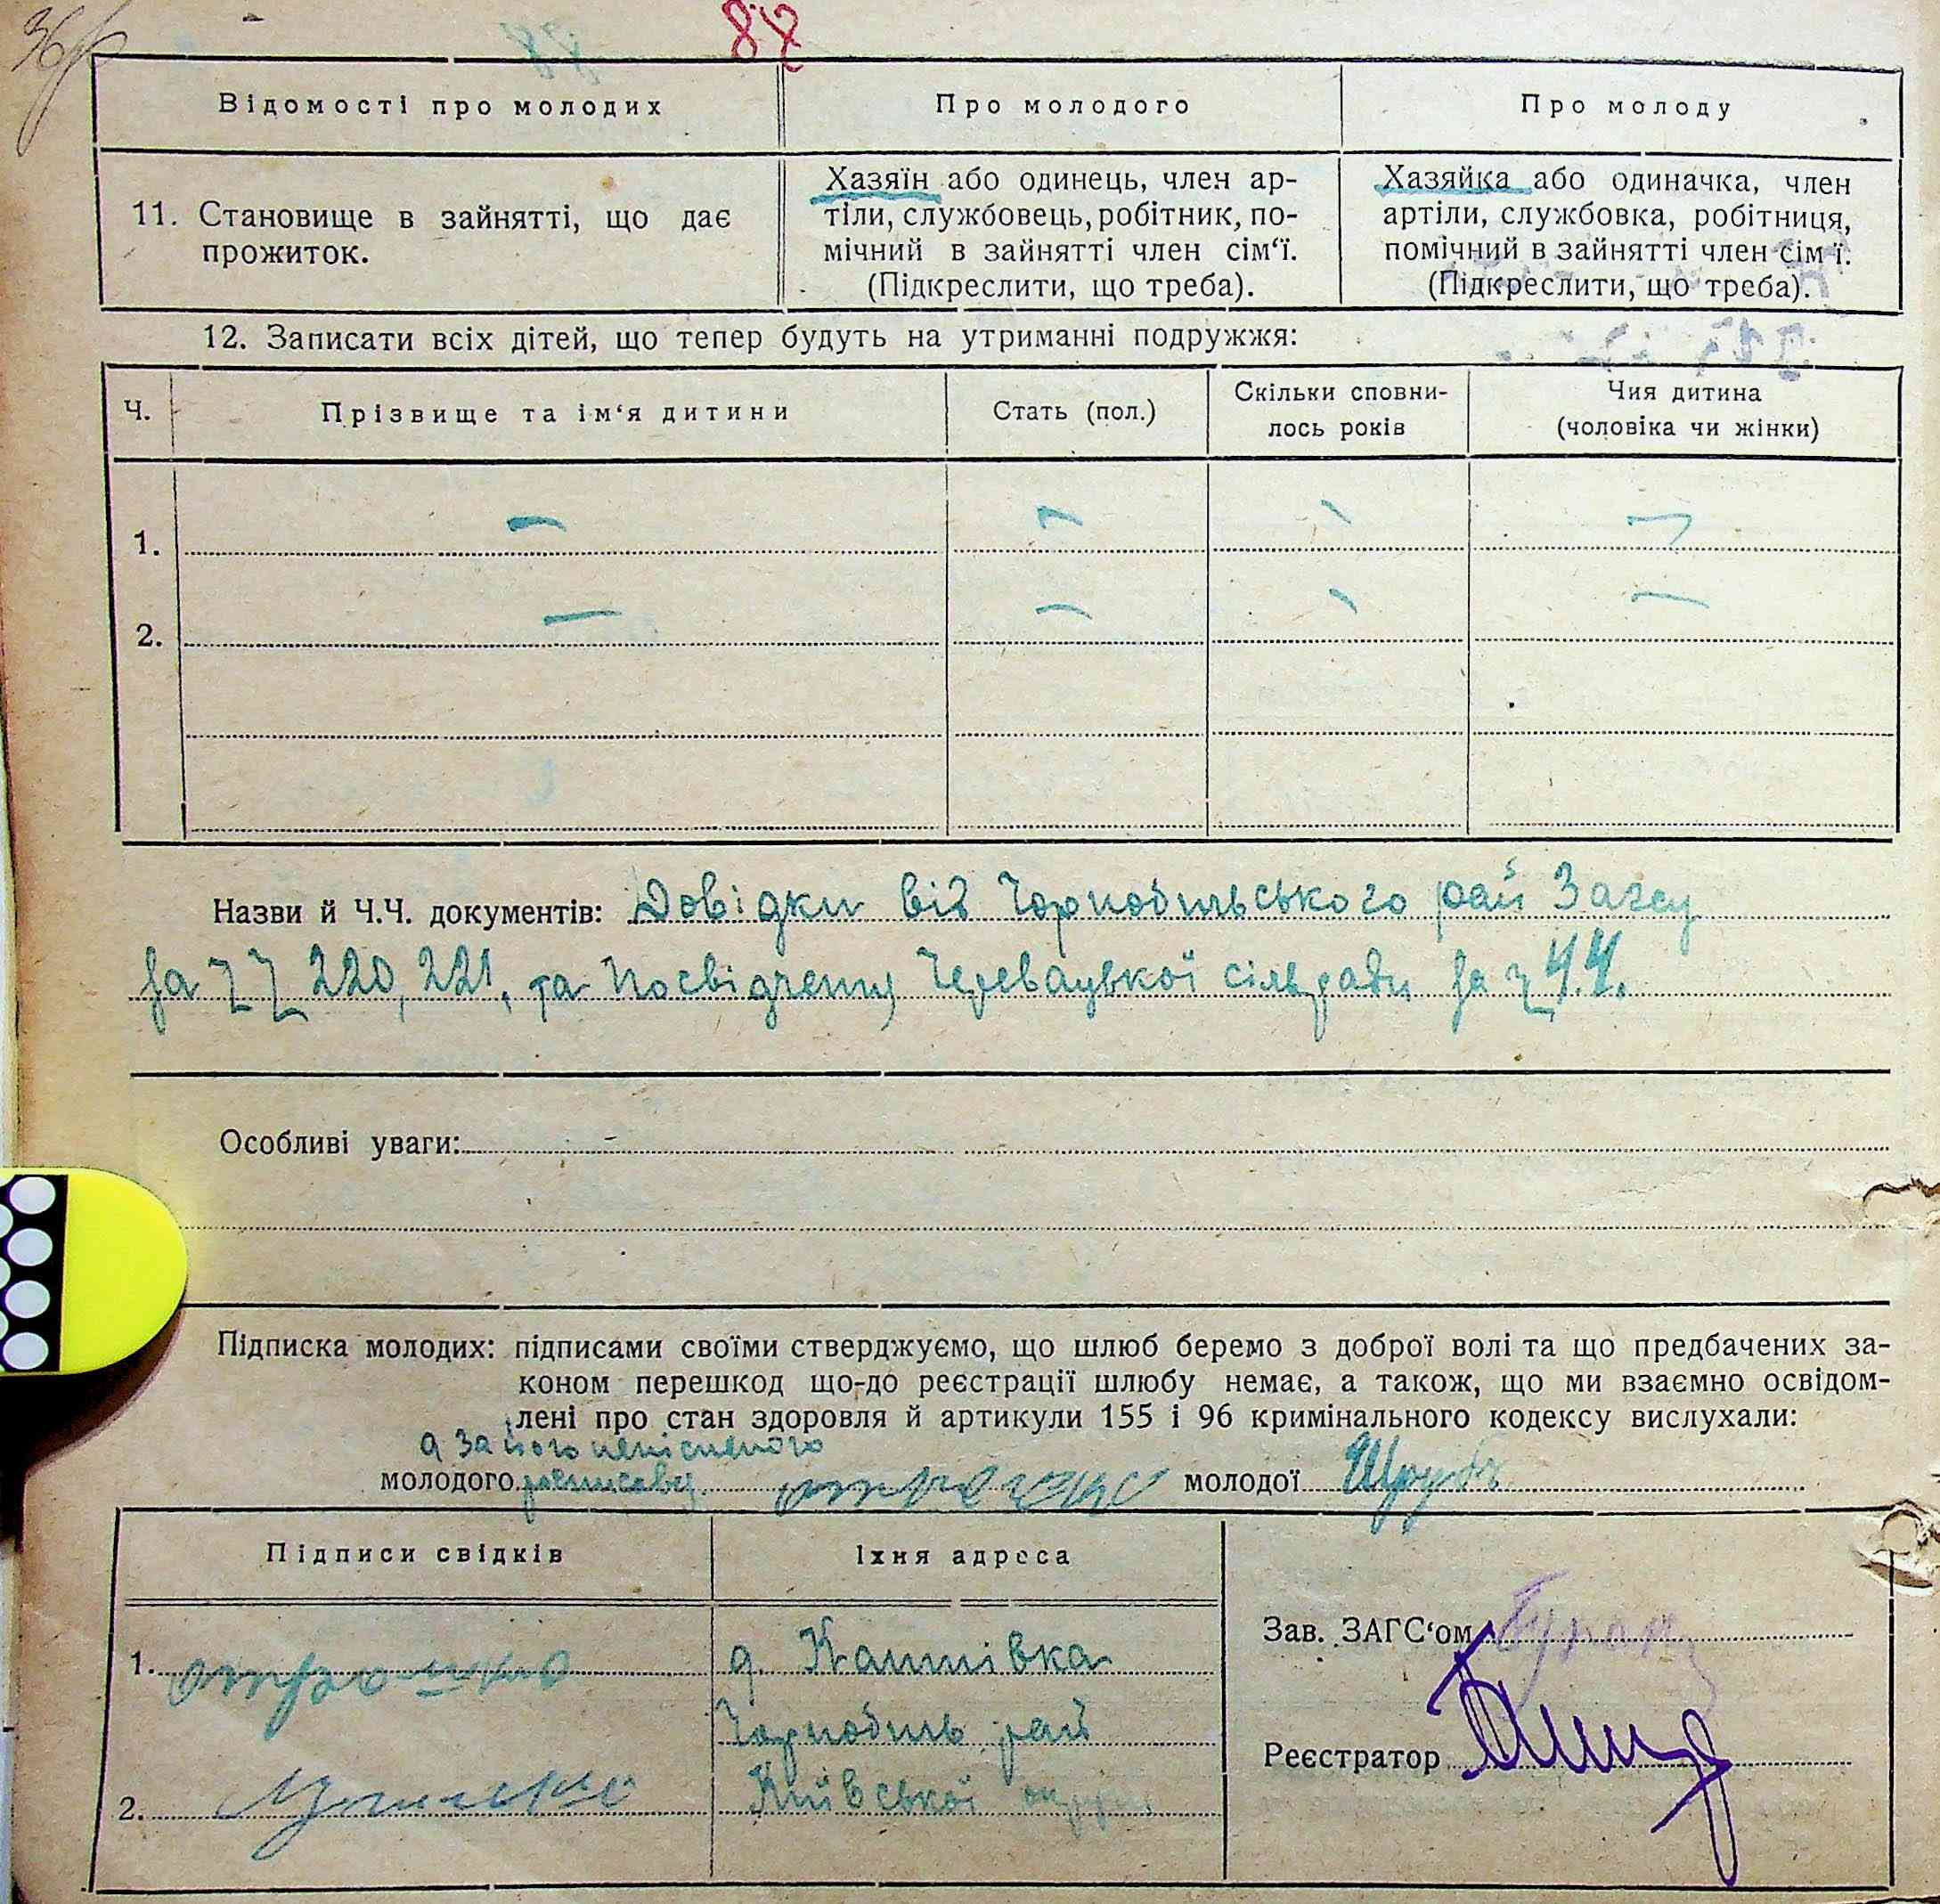 87
Відомості про молодих
Про молодого
Про молоду
11. Становище в зайнятті, що дає
прожиток.
Хазяїн або одинець, член ар-
тіли, службовець, робітник, по-
мічний в зайнятті член сім‘ї.
(Підкреслити, що треба).
Хазяйка або одиначка, член
артіли, службовка, робітниця,
помічний в зайнятті член сім ї.
(Підкреслити, що треба).
12. Записати всіх дітей, що тепер будуть на утриманні подружжя:
Ч.
Прізвище та ім‘я дитини
Стать (пол.)
Скільки сповни-
лось років
Чия дитина
(чоловіка чи жінки)
1. — — — —
2. — — — —
Назви й Ч.Ч. документів: Довідки від Чорнобильського рай Загсу
за ч ч 220, 221, та Посвідчення Черевацької сільради за ч 44.
Особливі уваги:
Підписка молодих: підписами своїми стверджуємо, що шлюб беремо з доброї волі та що предбачених за-
коном перешкод що-до реєстрації шлюбу немає, а також, що ми взаємно освідом-
лені про стан здоровля й артикули 155 і 96 кримінального кодексу вислухали:
а за його неписьменого
молодого молодої
Підписи свідків
Їхня адреса
1.
Чорнобиль рай
2.
Київської округи
Зав. ЗАГС‘ом
Реєстратор